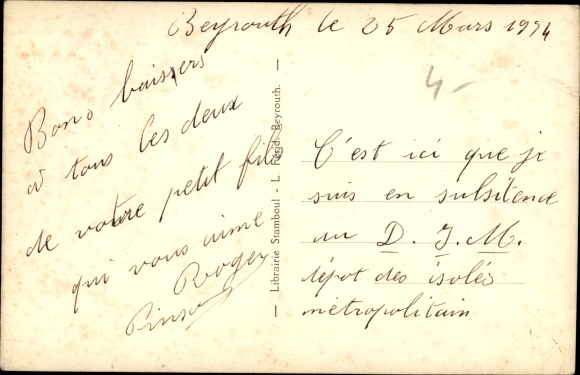 Beyrouth le 25 Mars 1924
4-
Bons baisers
à tous les deux
de votre petit fils
qui vous aime
Roger
— Librairie Stamboul - L. Férid. Beyrouth. —
C'est ici que je
suis en subsitence
au D. I. M.
dépot des isolés
métropolitain